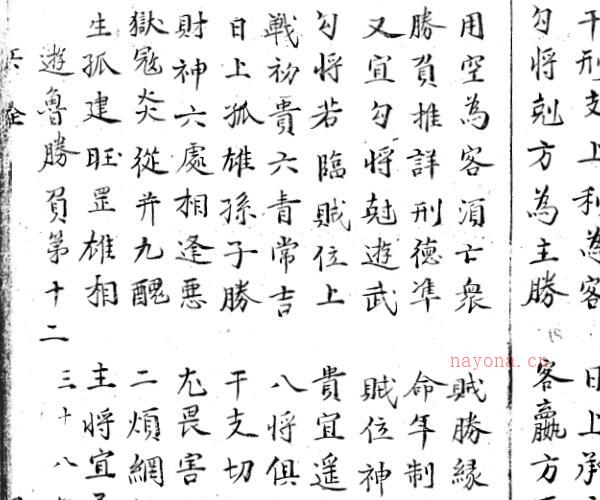 干刑支上利為客 日上承
勾將剋方為主勝 客贏方
用空為客須亡衆 賊勝縁
勝負推詳刑德准 命年制
又宜勾將尅遊武 賊位神
勾將若臨賊位上 貴宜遥
戰初貴六青常吉 八將俱
日上孤雄孫子勝 干支切
財神六處相逢惡 尤畏害
獄冦炎從并九醜 二煩網
生孤建旺罡雄相 主將宜
遊魯勝負第十二 三十八
nayona.cn